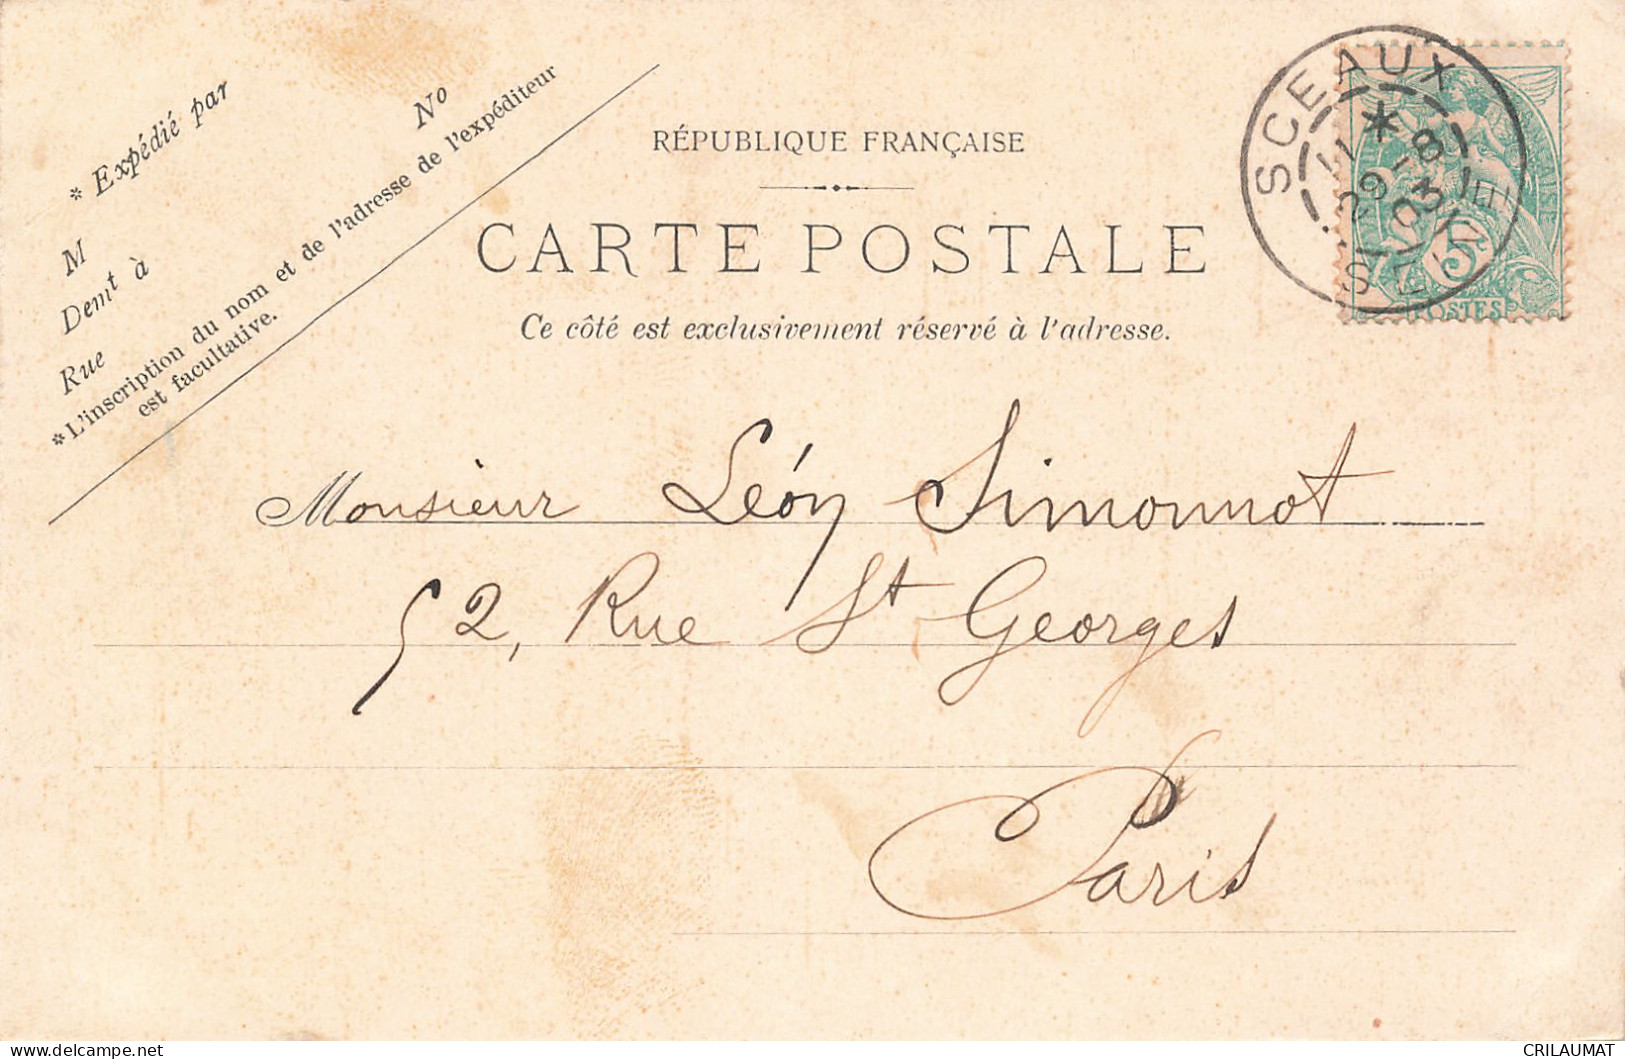 * Expédié par
N°
M
Demt à
Rue
* L'inscription du nom et de l'adresse de l'expéditeur
est facultative.
RÉPUBLIQUE FRANÇAISE
CARTE POSTALE
Ce côté est exclusivement réservé à l'adresse.
SCEAUX
*
29-8
03
SEINE
5
POSTES
Monsieur Léon Simonnot
52, Rue St Georges
Paris
CRILAUMAT